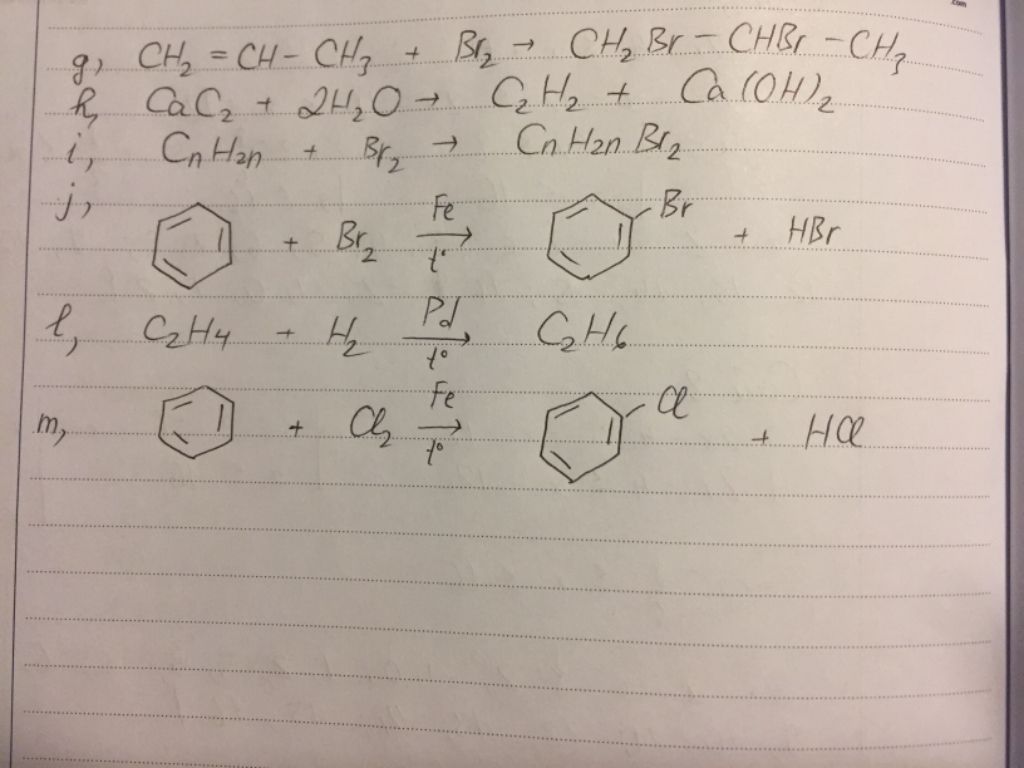 .com
g, CH₂ = CH - CH₃ + Br₂ → CH₂Br - CHBr - CH₃
h, CaC₂ + 2H₂O → C₂H₂ + Ca(OH)₂
i, CnH2n + Br₂ → CnH2nBr₂
j, + Br₂ Fe → t° Br + HBr
l, C₂H₄ + H₂ Pd → t° C₂H₆
m, + Cl₂ Fe → t° Cl + HCl